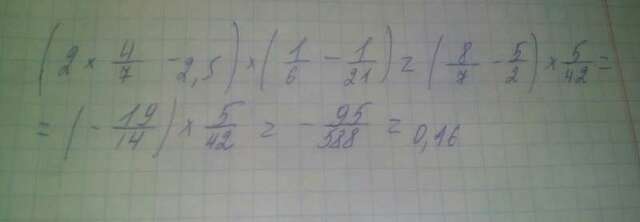 (2 × 4/7 - 2,5) × (1/6 - 1/21) = (8/7 - 5/2) × 5/42 =
= (- 19/14) × 5/42 = - 95/588 = 0,16